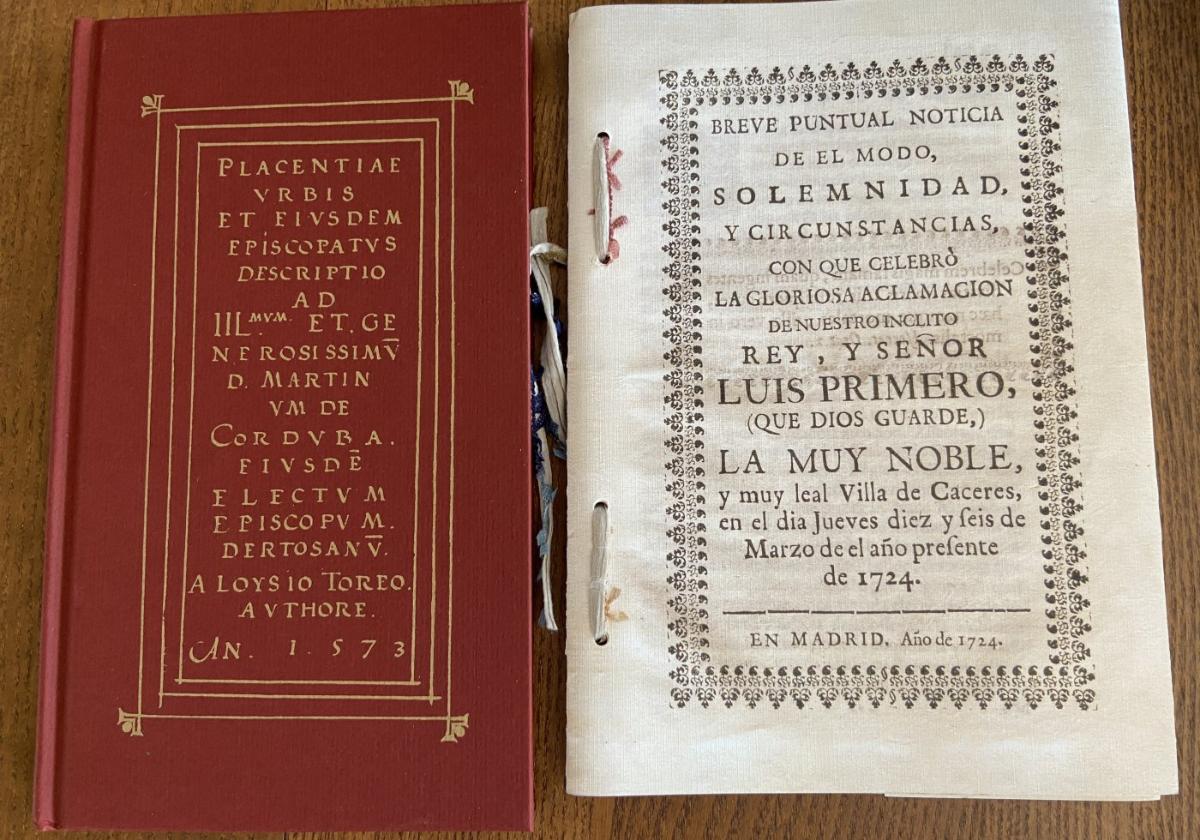 PLACENTIAE
VRBIS
ET EIVSDEM
EPISCOPATVS
DESCRIPTIO
AD
IIL.MVM. ET. GE
NEROSISSIMV̄
D. MARTIN
VM DE
CORDVBA.
EIVSDĒ
ELECTVM
EPISCOPVM.
DERTOSANV̄.
ALOYSIO TOREO.
AVTHORE.
AN. 1.573
BREVE PUNTUAL NOTICIA
DE EL MODO,
SOLEMNIDAD,
Y CIRCUNSTANCIAS,
CON QUE CELEBRÒ
LA GLORIOSA ACLAMACION
DE NUESTRO INCLITO
REY, Y SEÑOR
LUIS PRIMERO,
(QUE DIOS GUARDE,)
LA MUY NOBLE,
y muy leal Villa de Caceres,
en el dia Jueves diez y ſeis de
Marzo de el año preſente
de 1724.
EN MADRID, Año de 1724.